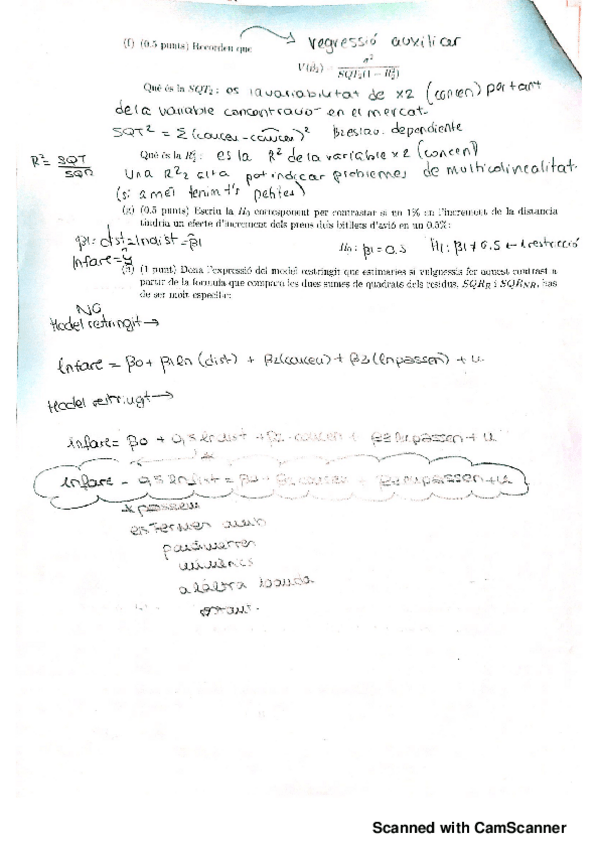 (f) (0.5 punts) Recordeu que → regressió auxiliar
V(β̂₂) = σ² / SQT₂(1 − R₂²)
Què és la SQT₂: es la variabilitat de x2 (concen) per tant
de la variable concentració en el mercat.
SQT² = Σ(concen - concen)²
dependiente
R² = SQT / SQR
Què és la R₂²: es la R² de la variable x2 (concen)
Una R²₂ alta pot indicar problemes de multicolinealitat.
(si a més tenim petites)
(g) (0.5 punts) Escriu la H₀ corresponent per contrastar si un 1% en l'increment de la distancia
tindria un efecte d'increment dels preus dels bitllets d'avió en un 0.5%:
β1: dist = lndist = β̂1
H₀: β1 = 0.5 H1: β1 ≠ 0.5 ← 1 restricció
lnfare = ŷ
(h) (1 punt) Dona l'expressió del model restringit que estimaries si vulguessis fer aquest contrast a
partir de la formula que compara les dues sumes de quadrats dels residus, SQR_R i SQR_NR, has
de ser molt especific:
NO
Model restringit →
lnfare = β0 + β1 ln (dist) + β2 (concen) + β3 (lnpassen) + u
Model restringit →
lnfare = β0 + 0,5 lndist + β2 concen + lnpassen + u
lnfare - 0,5 lndist = β0 + β2 concen + lnpassen + u
* passem
els termes amb
a l'altra banda
Scanned with CamScanner